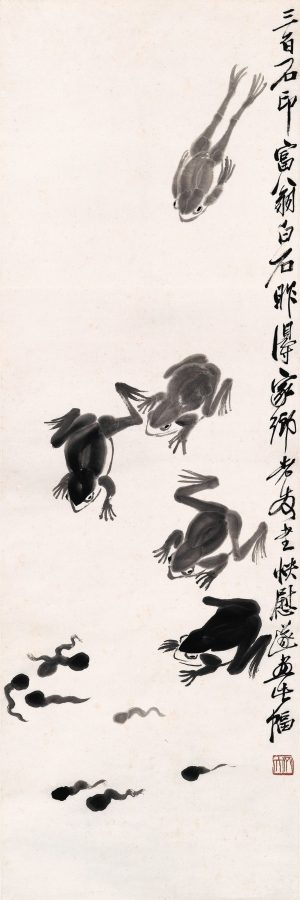 三百石印富翁白石昨得家乡老友書快慰遂画此幅